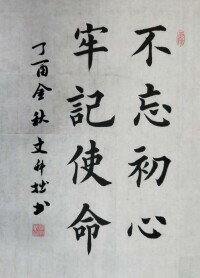 不忘初心
牢記使命
丁酉金秋文升杜书